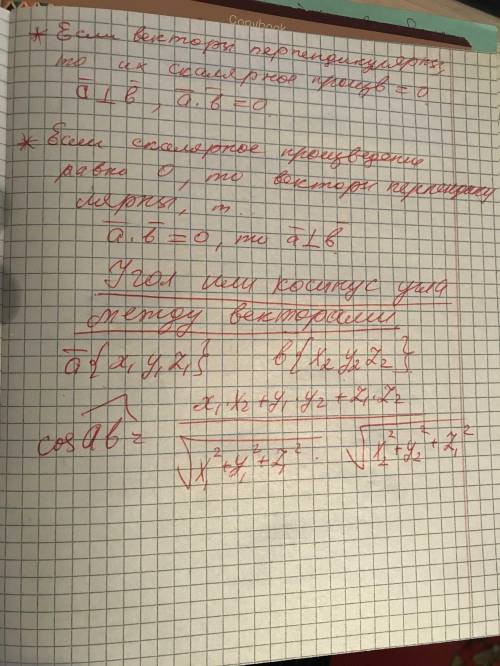 Copybook
* Если векторы перпендикулярны,
то их скалярное произв = 0
a̅ ⊥ b̅, a̅ · b̅ = 0.
* Если скалярное произведение
равно 0, то векторы перпендику
лярны, т.
a̅ · b̅ = 0, то a̅ ⊥ b̅
Угол или косинус угла
между векторами
a̅ {x₁ y₁ z₁} в {x₂ y₂ z₂}
cos a͡b = (x₁·x₂ + y₁·y₂ + z₁·z₂) / (√(x₁² + y₁² + z₁²) · √(x₂² + y₂² + z₁²))